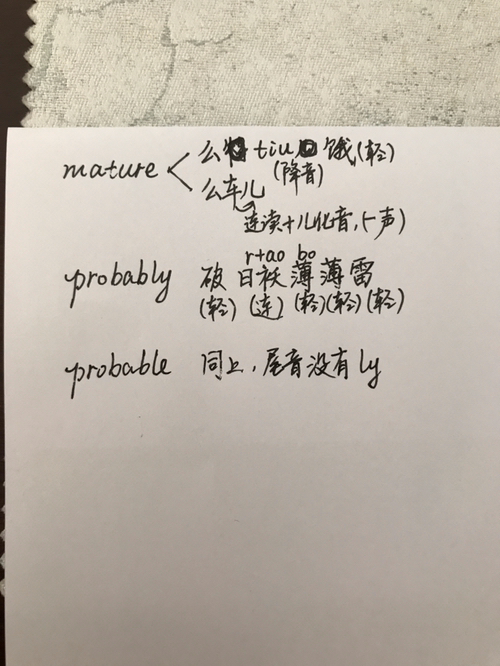 么 tiu 饿(轻)
mature < (降音)
么车儿
连读+儿化音,(一声)
r+ao bo
probably 破日袄薄薄雷
(轻)(连)(轻)(轻)(轻)
probable 同上,尾音没有ly